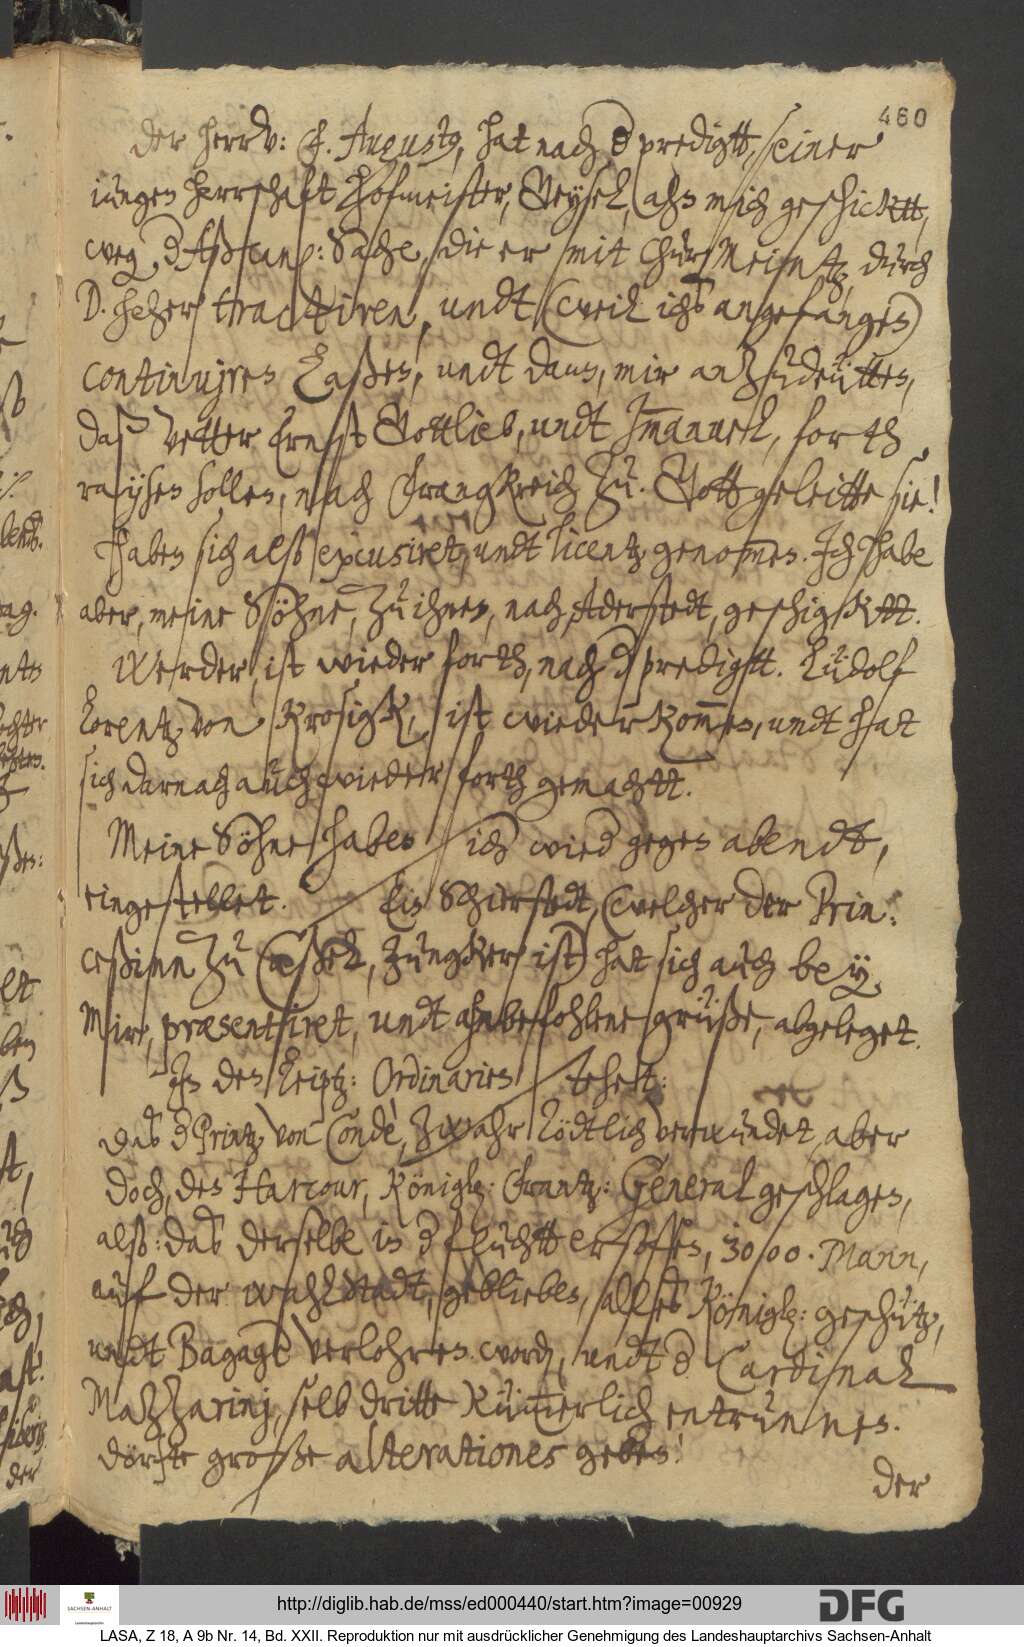 460
der herr v: F. Augustus, hat nach d predigtt, seiner
iungen herrschaft Hofmeister, Geysel, ahn mich geschicktt,
weg d Aßcan: Sache, die er mit Chur Meintz, durch
D. Heher tractiren, undt (weil ichs angefangen)
continuiren Laßen, undt dann, mir anzudeütten,
daß Vetter Ernst Gottlieb, undt Immanuel, forth
raysen sollen, nach Frangkreich zu. Gott geleitte sie!
Haben sich alß excusiret, undt licentz genommen. Ich habe
aber, meine Söhne, zu ihnen, nach Aderstedt, geschigktt.
Werder, ist wieder forth, nach d predigtt. Ludolf
Lorentz von Krosigk, ist wieder kommen, undt hat
sich darnach auch wieder forth gemachtt.
Meine Söhne haben sich wied gegen abendt,
eingestellet. Ein Schierstedt, (welcher der Prin:
ceßinn zu Caßel, Jungker ist) hat sich auch bey
Mir, præsentiret, undt anbefohlene grüße, abgeleget.
In den Leiptz: Ordinarien stehet:
das d Printz von Condè, zwahr tödtlich verwundet, aber
doch, den Harcour, Königl: Frantz: General geschlagen,
alß: das derselbe in d fluchtt ersoffen, 3000. Mann,
auf der wahlstadt, geblieben, alles Königl: geschütz,
undt Bagage verlohren word, undt d Cardinal
Mazzarinj, selb dritte kümmerlich entrunnen.
dörfte große alterationes geben!
der
ag.
der
http://diglib.hab.de/mss/ed000440/start.htm?image=00929
SACHSEN-ANHALT
Landeshauptarchiv
DFG
LASA, Z 18, A 9b Nr. 14, Bd. XXII. Reproduktion nur mit ausdrücklicher Genehmigung des Landeshauptarchivs Sachsen-Anhalt